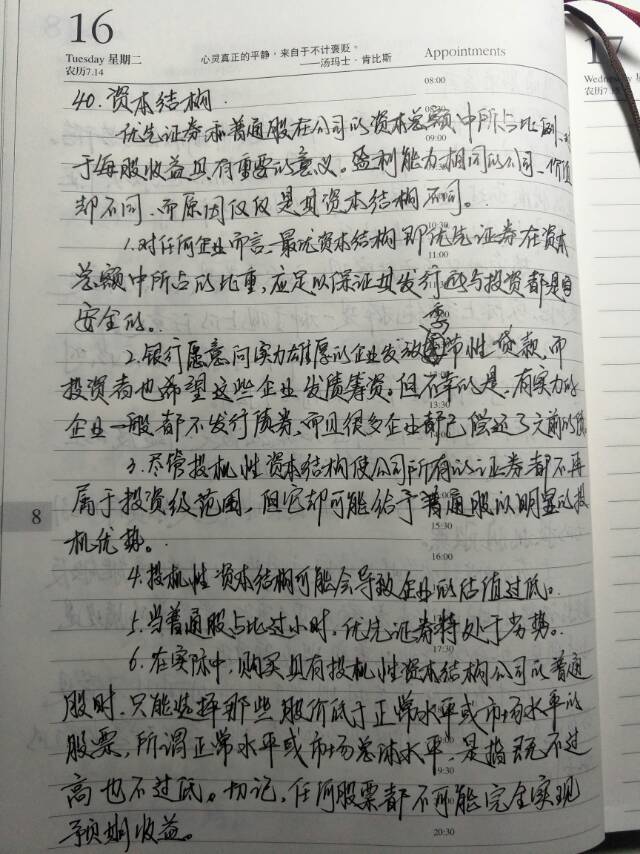 16
Tuesday 星期二
农历7.14
心灵真正的平静，来自于不计褒贬。
——汤玛士·肯比斯
Appointments
08:00
40. 资本结构.
优先证券和普通股在公司的资本总额中所占比例、对
09:00
于每股收益具有重要的意义。盈利能力相同的公司、价值
却不同、而原因仅仅是其资本结构不同。
1.对任何企业而言、最优资本结构即优先证券在资本
11:00
总额中所占的比重，应足以保证其发行与投资都是
安全的。
季
2.银行愿意向实力雄厚的企业发放节性贷款，而
投资者也希望这些企业发债筹资。但不幸的是、有实力的
13:30
企业一般都不发行债券，而且很多企业都已偿还了之前的债
3.尽管投机性资本结构使公司所有的证券都不再
属于投资级范围，但它却可能给于普通股以明显的投
8
15:30
机优势。
16:00
4.投机性资本结构可能会导致企业的估值过低。
5.当普通股占比过小时，优先证券将处于劣势。
17:30
6.在实际中，购买具有投机性资本结构公司的普通
股时、只能选择那些股价低于正常水平或市场水平的
股票，所谓正常水平或市场总体水平，是指既不过
19:30
高也不过低。切记，任何股票都不可能完全实现
预期收益。
20:30
17
农历7.